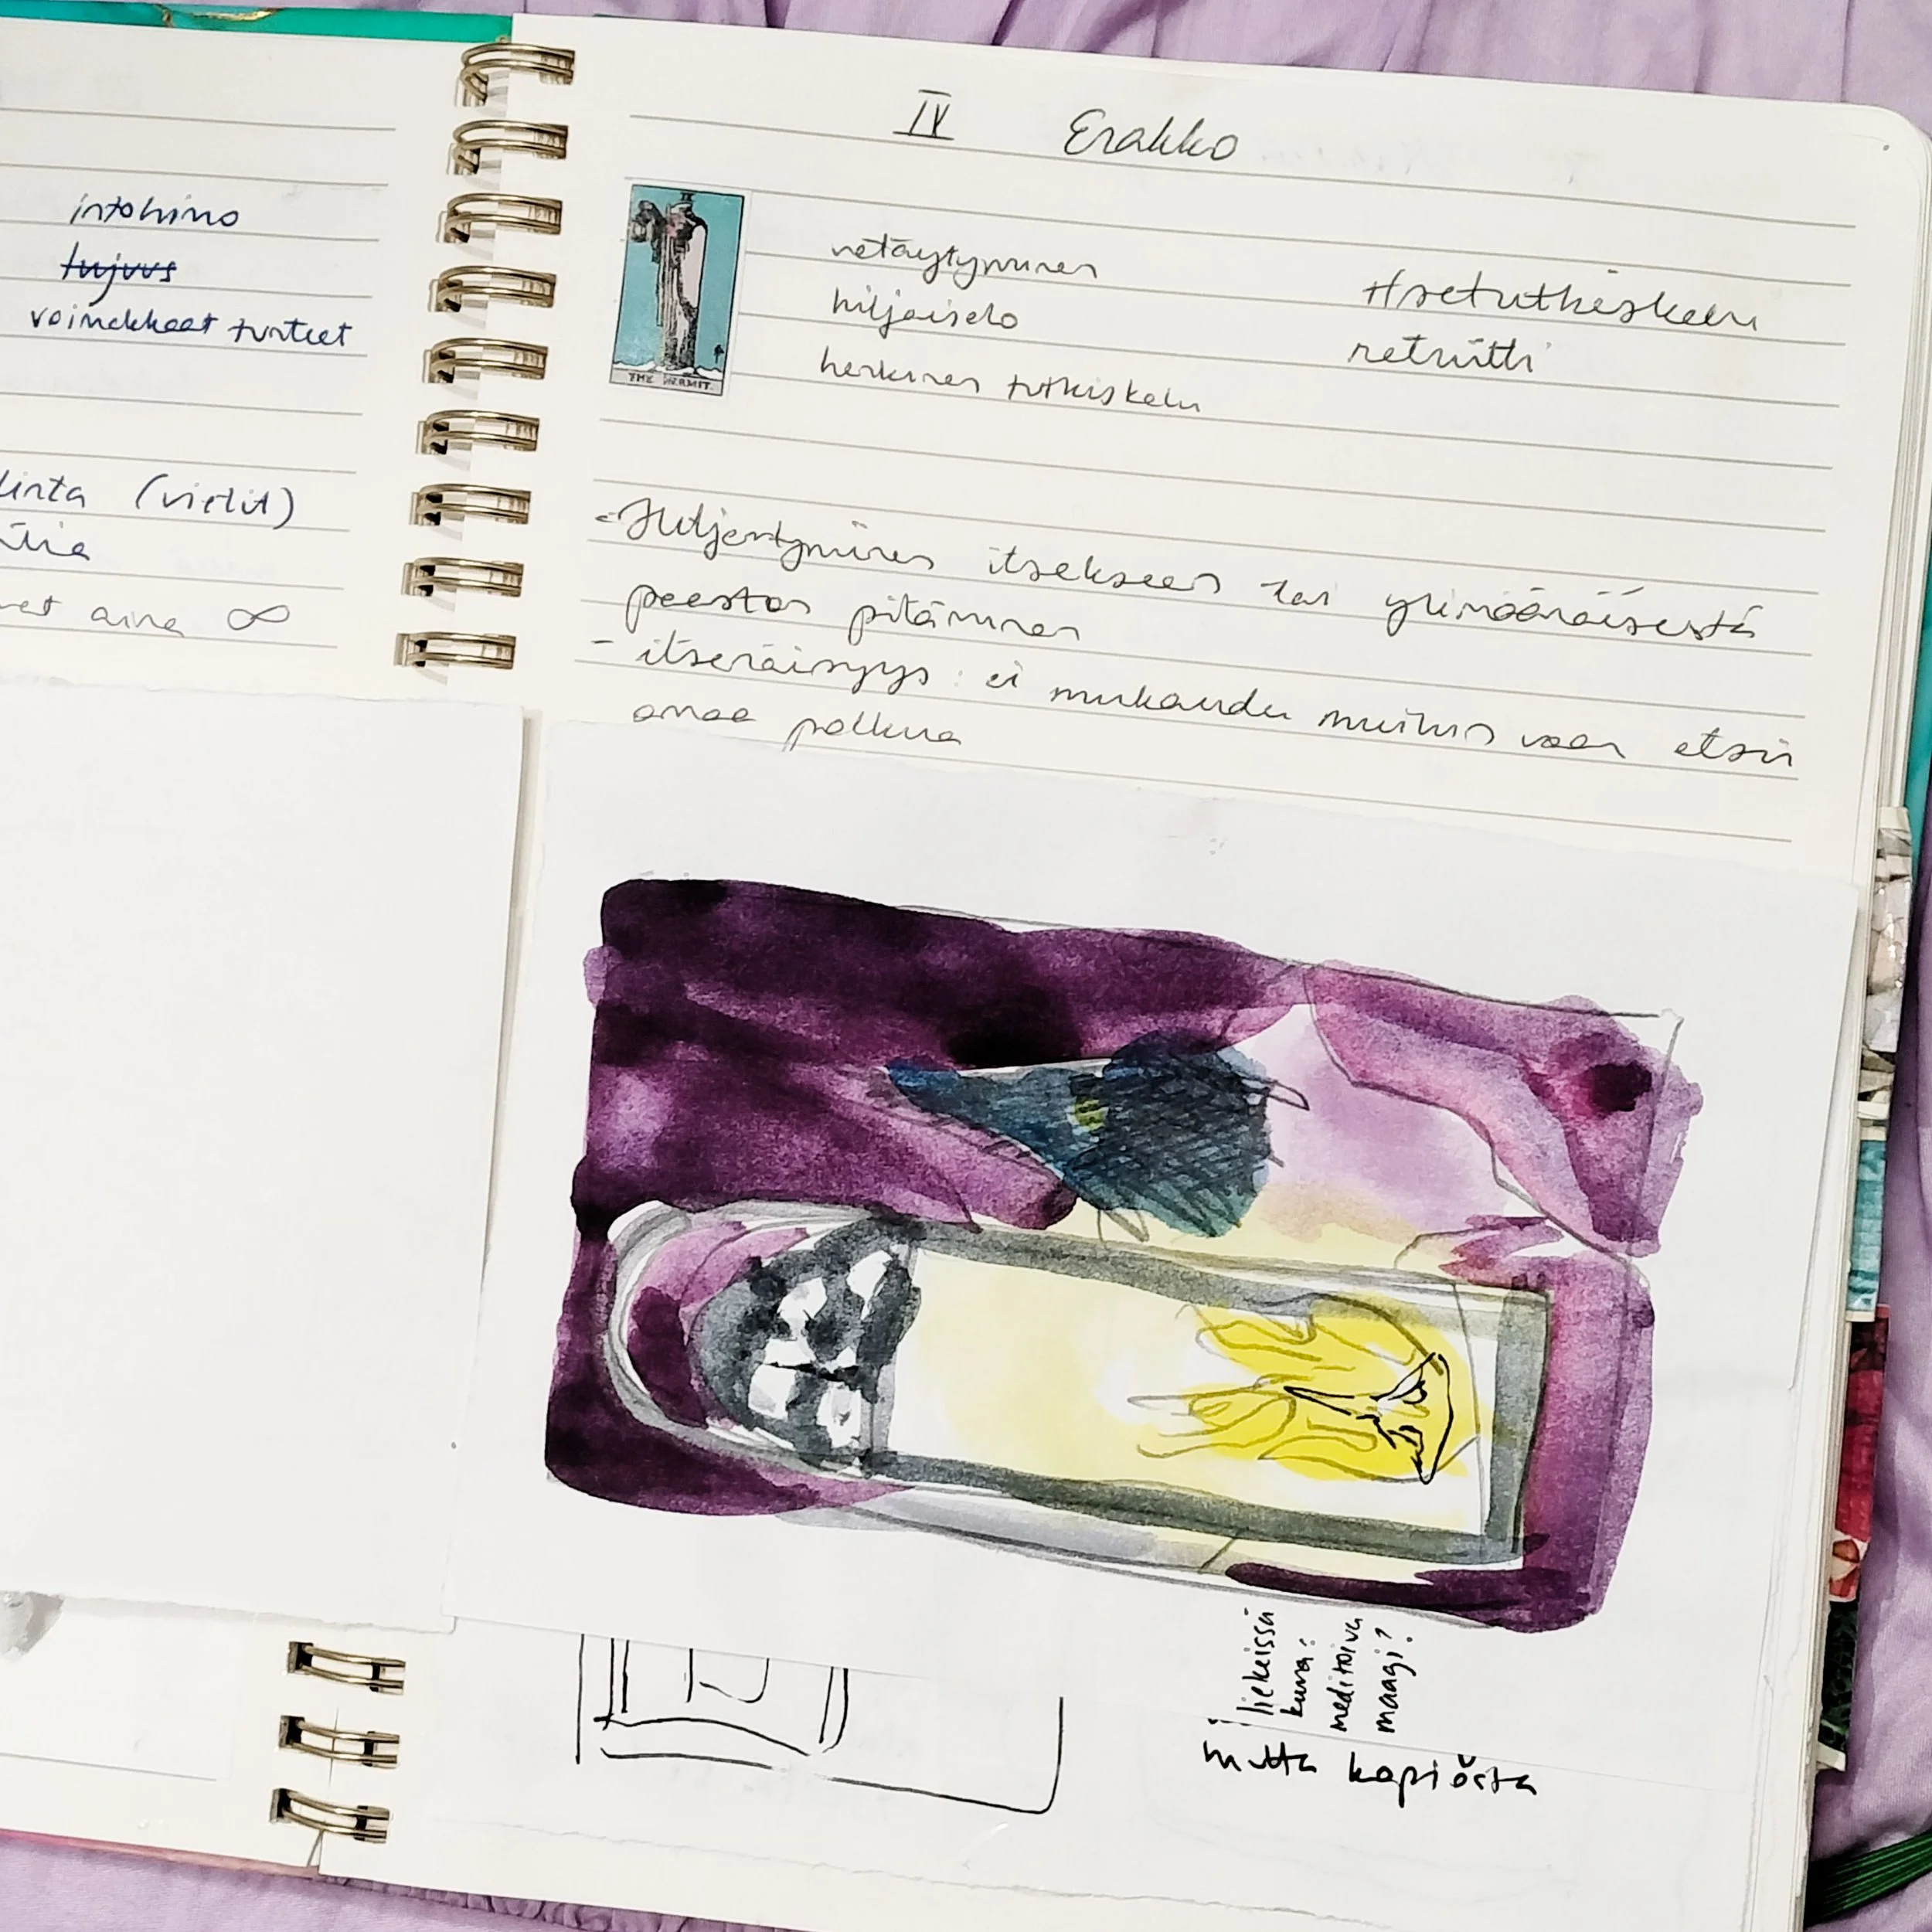 intohimo
lujuus
voimakkaat tunteet
linta (vielit)
aina ∞
IV Erakko
THE HERMIT.
vetäytyminen
hiljaiselo
henkinen tutkiskelu
Itsetutkiskelu
retriitti
- Hiljentyminen itsekseen tai ylimääräisestä
paaston pitäminen
- itsenäisyys: ei mukaudu muihin vaan etsii
omaa polkua
liekeissä
kuva:
meditoiva
maagi?
mutta kopiosta